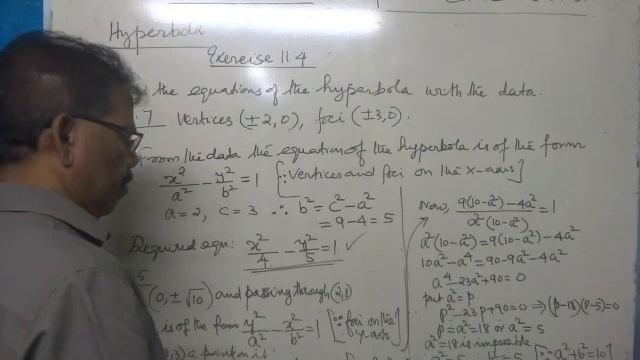 Hyperbola
Exercise 11.4
the equations of the hyperbola with the data.
7 Vertices (±2,0), foci (±3,0).
From the data the equation of the hyperbola is of the form
x²/a² - y²/b² = 1 [∵ Vertices and foci on the x-axis]
a = 2, c = 3 ∴ b² = c² - a²
= 9 - 4 = 5
Required eqn: x²/4 - y²/5 = 1 ✓
(0, ±√10) and passing through (2,3)
is of the form y²/a² - x²/b² = 1 [∵ foci on the y-axis]
2,3) a point is
Now, 9(10-a²)-4a²/a²(10-a²) = 1
a²(10-a²) = 9(10-a²)-4a²
10a²-a⁴ = 90-9a²-4a²
a⁴-23a²+90 = 0
put a² = p
p²-23p+90=0 ⇒ (p-18)(p-5)=0
p = a² = 18 or a² = 5
a² = 18 is impossible [∵ a²+b²=10]